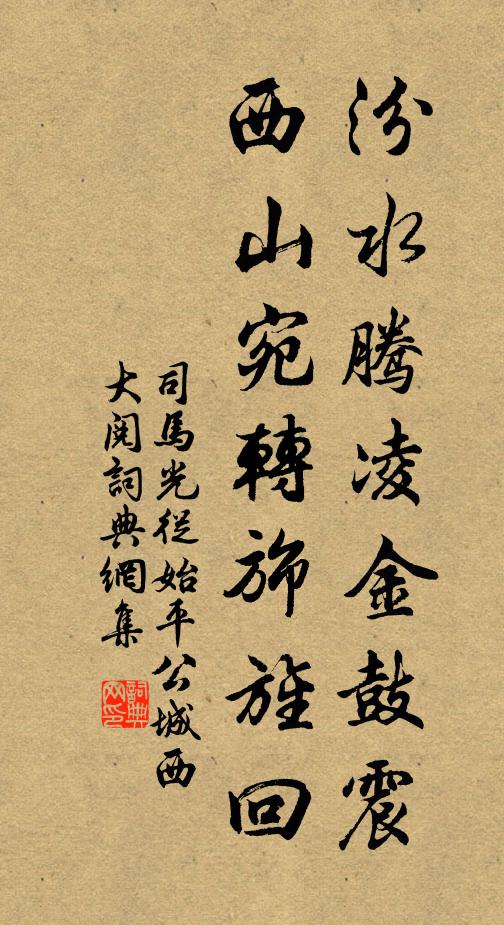 汾水騰凌金鼓震
西山宛轉旆旌回
司馬光從始平公城西
大閱詞典網集
詞典
网印